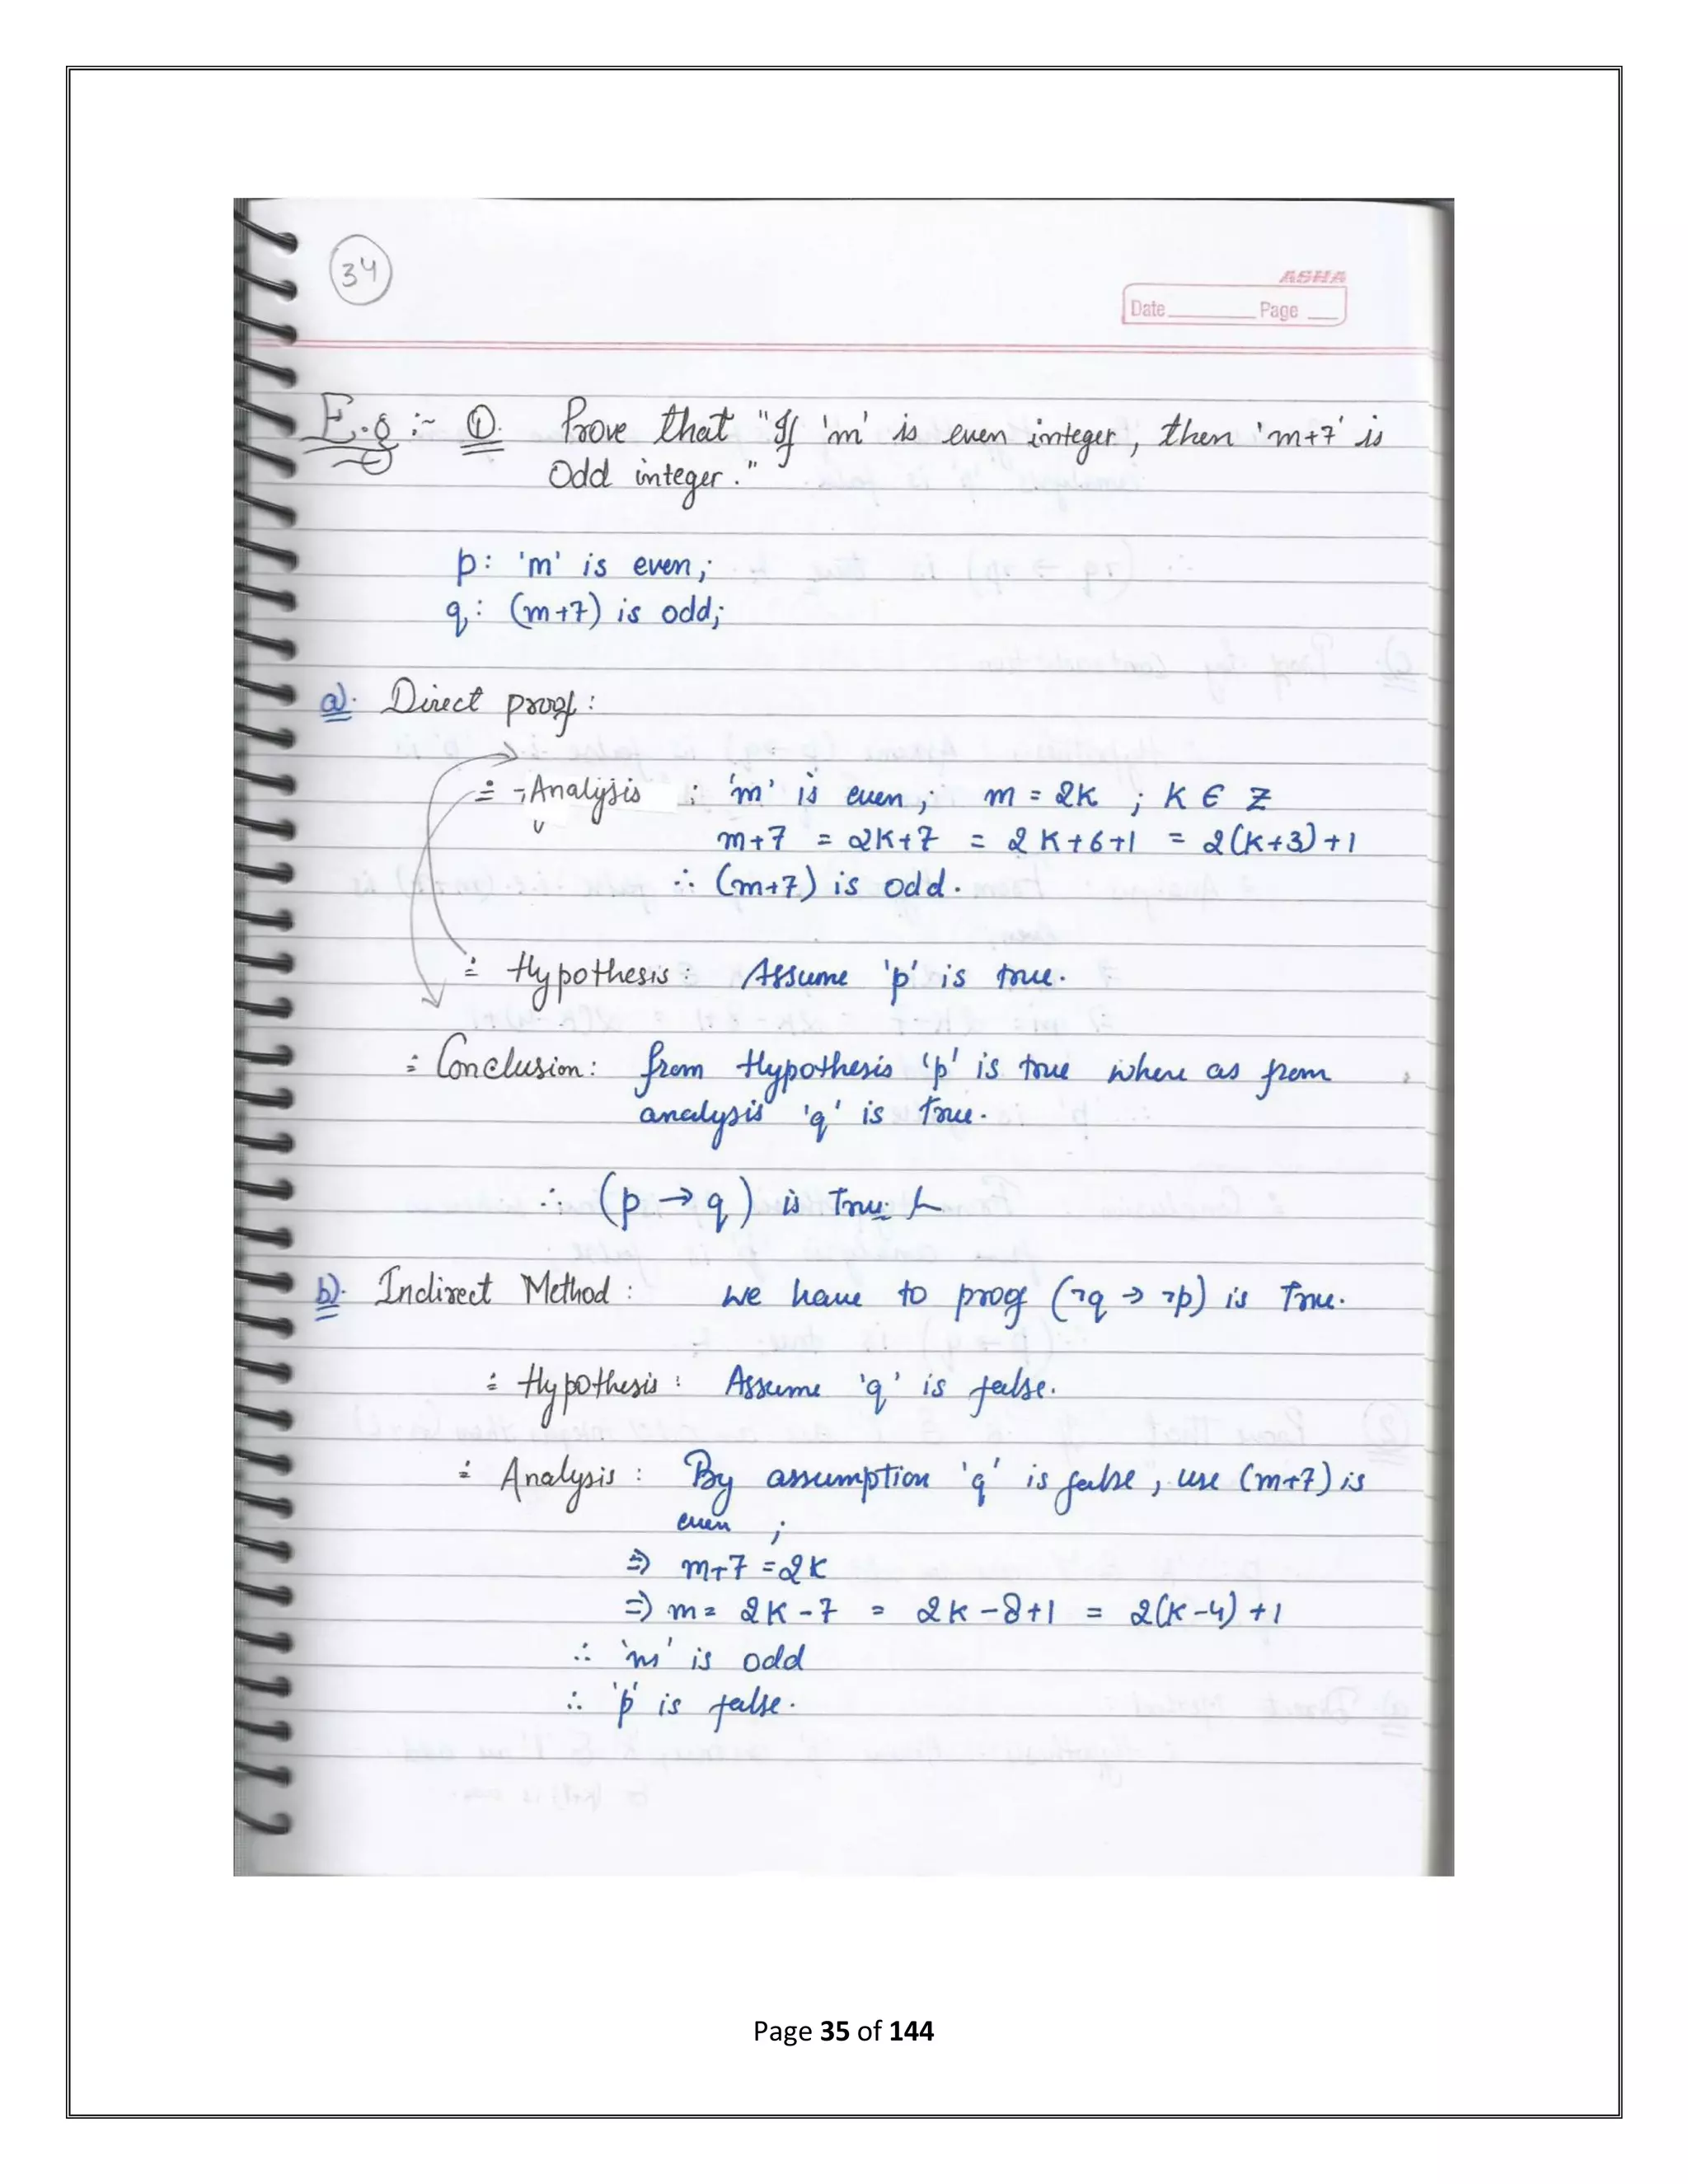 34
ASHA
Date Page
E.g :- ①. Prove that "If 'm' is even integer, then 'm+7' is
Odd integer."
p: 'm' is even;
q: (m+7) is odd;
a). Direct proof:
Analysis : 'm' is even; m = 2k ; k ∈ Z
m+7 = 2k+7 = 2k+6+1 = 2(k+3)+1
∴ (m+7) is odd.
Hypothesis: Assume 'p' is true.
Conclusion: from Hypothesis 'p' is true where as from
analysis 'q' is true.
∴ (p → q) is True
b). Indirect Method : we have to proof (¬q → ¬p) is True.
Hypothesis : Assume 'q' is false.
Analysis : By assumption 'q' is false, use (m+7) is
even ;
⇒ m+7 = 2k
⇒ m = 2k-7 = 2k-8+1 = 2(k-4)+1
∴ 'm' is odd
∴ 'p' is false.
Page 35 of 144